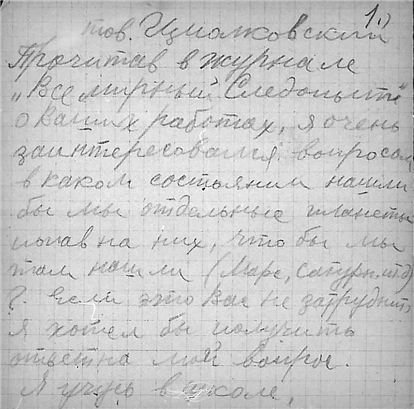 1.)
тов. Циолковский
Прочитав в журнале
„Всемирный Следопыт"
о Ваших работах, я очень
заинтересовался вопросом
в каком состоянии нашли
бы мы отдельные планеты
попав на них, что бы мы
там нашли (Марс, Сатурн и т.д)
?. Если это Вас не затруднит
я хотел бы получить
ответ на мой вопрос.
Я учусь в школе,